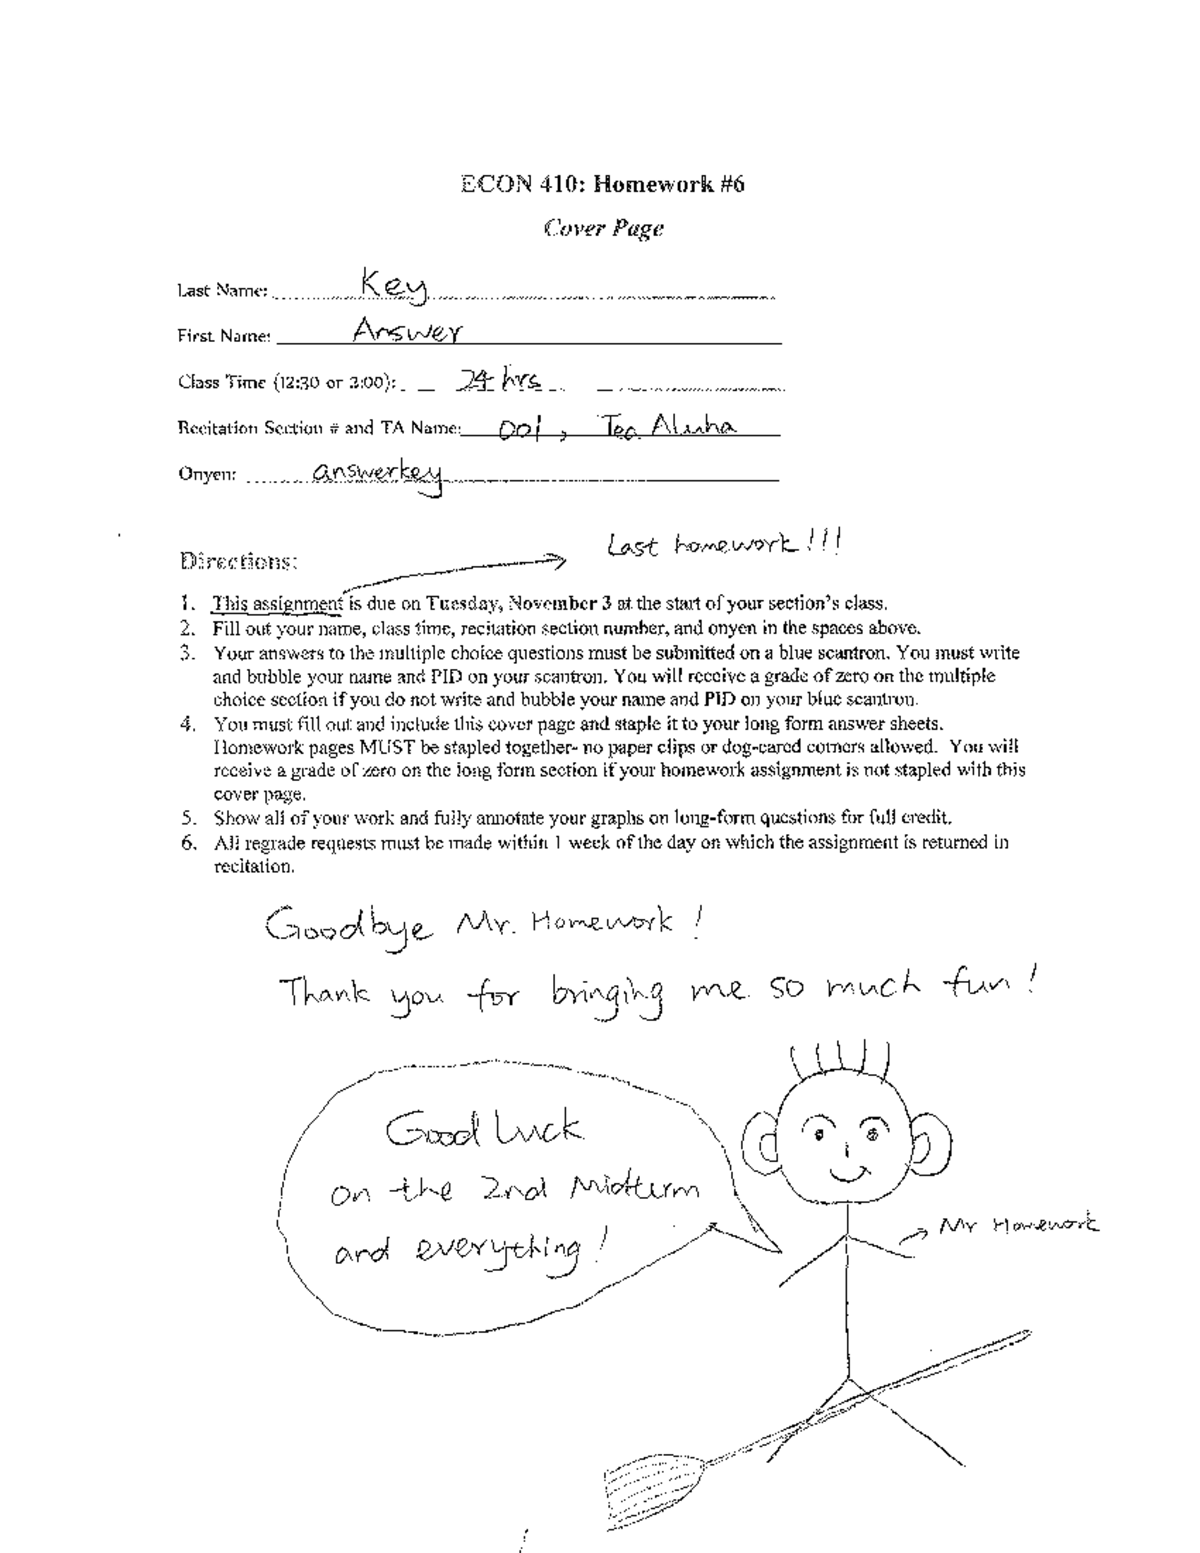 ECON 410: Homework #6
Cover Page
Last Name: Key
First Name: Answer
Class Time (12:30 or 2:00): 24 hrs
Recitation Section # and TA Name: 001,
Onyen: answerkey
Last homework!!!
Directions:
1. This assignment is due on Tuesday, November 3 at the start of your section's class.
2. Fill out your name, class time, recitation section number, and onyen in the spaces above.
3. Your answers to the multiple choice questions must be submitted on a blue scantron. You must write
and bubble your name and PID on your scantron. You will receive a grade of zero on the multiple
choice section if you do not write and bubble your name and PID on your blue scantron.
4. You must fill out and include this cover page and staple it to your long form answer sheets.
Homework pages MUST be stapled together- no paper clips or dog-eared corners allowed. You will
receive a grade of zero on the long form section if your homework assignment is not stapled with this
cover page.
5. Show all of your work and fully annotate your graphs on long-form questions for full credit.
6. All regrade requests must be made within 1 week of the day on which the assignment is returned in
recitation.
Goodbye Mr. Homework!
Thank you for bringing me so much fun!
Good Luck
on the 2nd Midterm
and everything!
Mr Homework